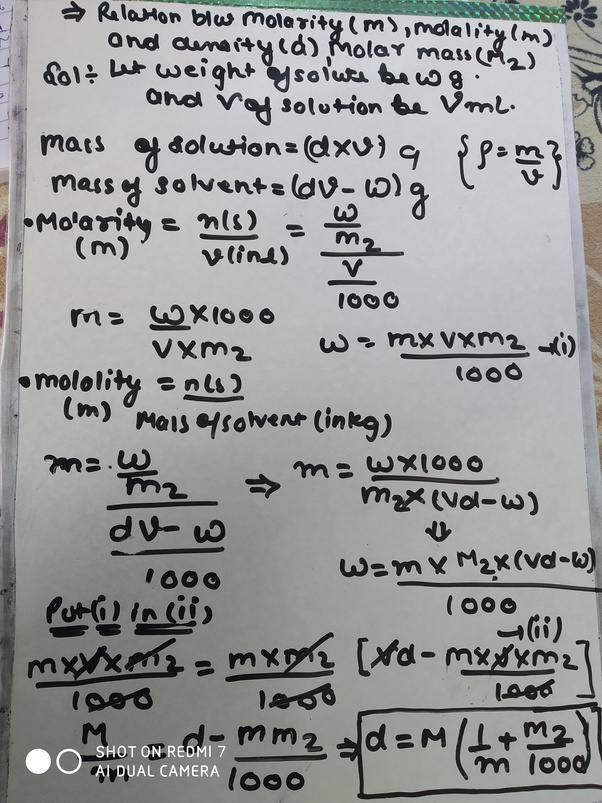 ⇒ Relation b/w molarity(m), molality(m)
and density(d), Molar mass(M₂)
Sol÷ Let weight of solute be w g.
and V of solution be V mL.
Mass of solution = (d×v) g {ρ = m/v}
Mass of solvent = (dV - w) g
• Molarity (m) = n(s)/v(in L) = (w/m₂)/(V/1000)
m = w×1000/V×m₂
w = m×V×m₂/1000 →(i)
• Mololity (m) = n(s)/Mass of solvent (in kg)
m = (w/m₂)/((dV - w)/1000) ⇒ m = w×1000/m₂×(Vd-w)
⇓
w = m×M₂×(Vd-w)/1000 →(ii)
Put (i) in (ii)
m×V×m₂/1000 = m×m₂/1000 [Vd - m×V×m₂/1000]
M/m = d - mm₂/1000 ⇒ d = M(1/m + m₂/1000)
SHOT ON REDMI 7
AI DUAL CAMERA